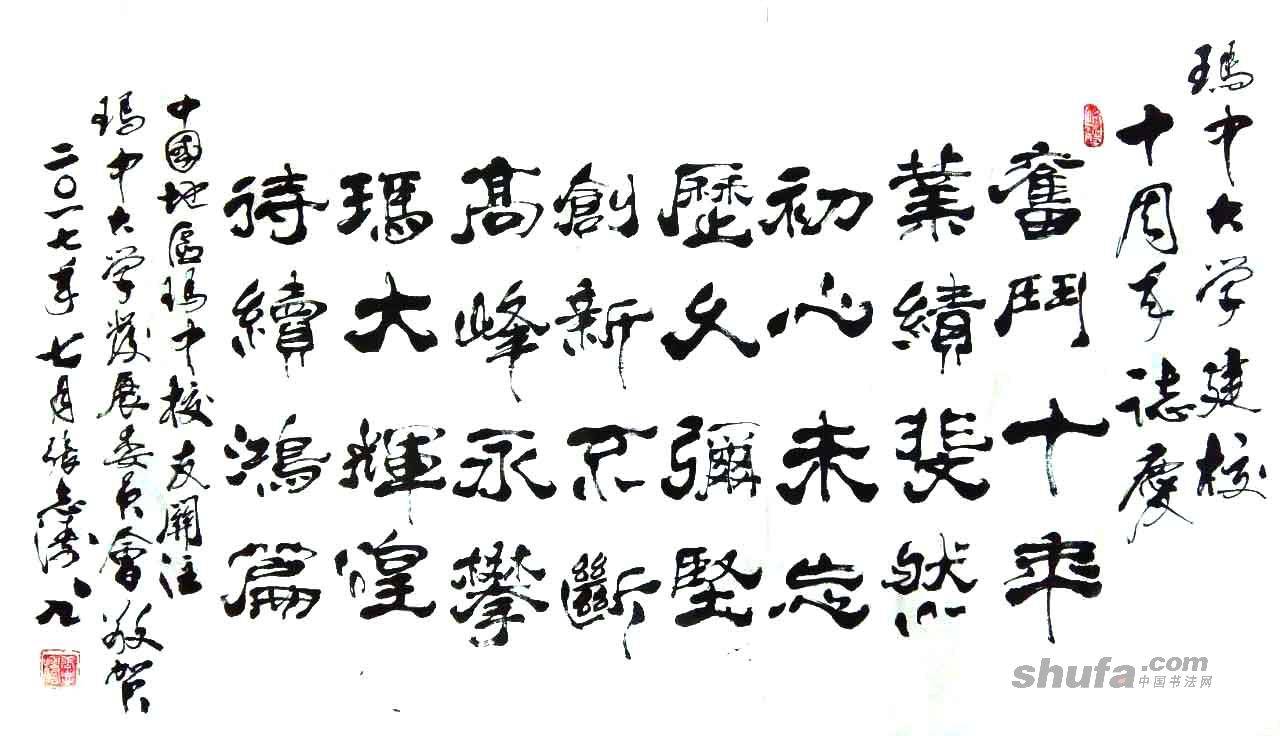 瑪中大学建校
十周年誌慶
奮鬥十年
業績斐然
初心未忘
歷久彌堅
創新不斷
髙峰永攀
瑪大輝煌
待續鴻篇
中國地區瑪中校友關注
瑪中大学發展委员會敬賀
二〇一七年七月張志
shufa.com
中国书法网